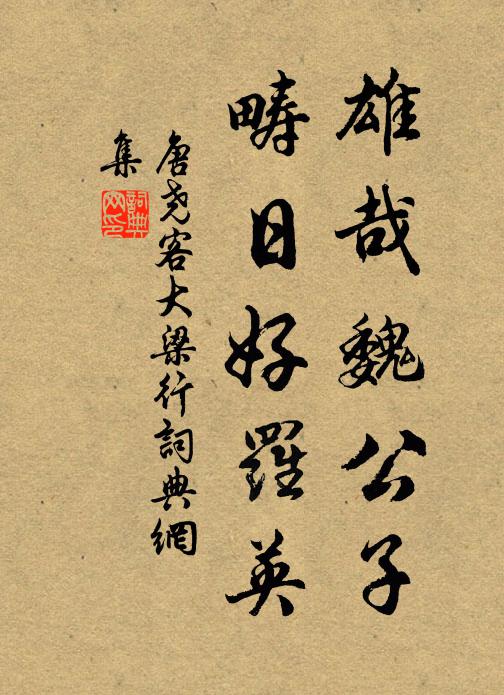 雄哉魏公子
畴日好羅英
唐尧客大梁行詞典網
集
詞典
网印